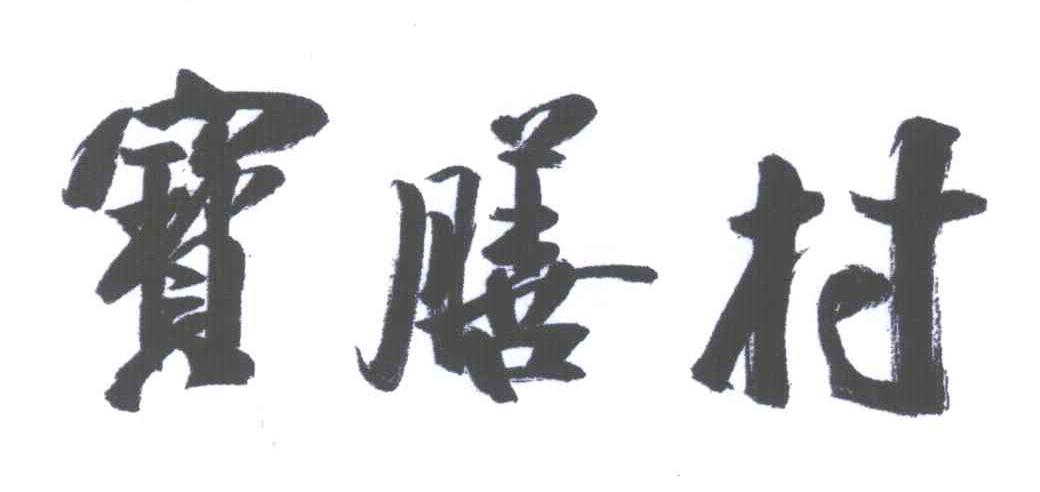 寶膳村